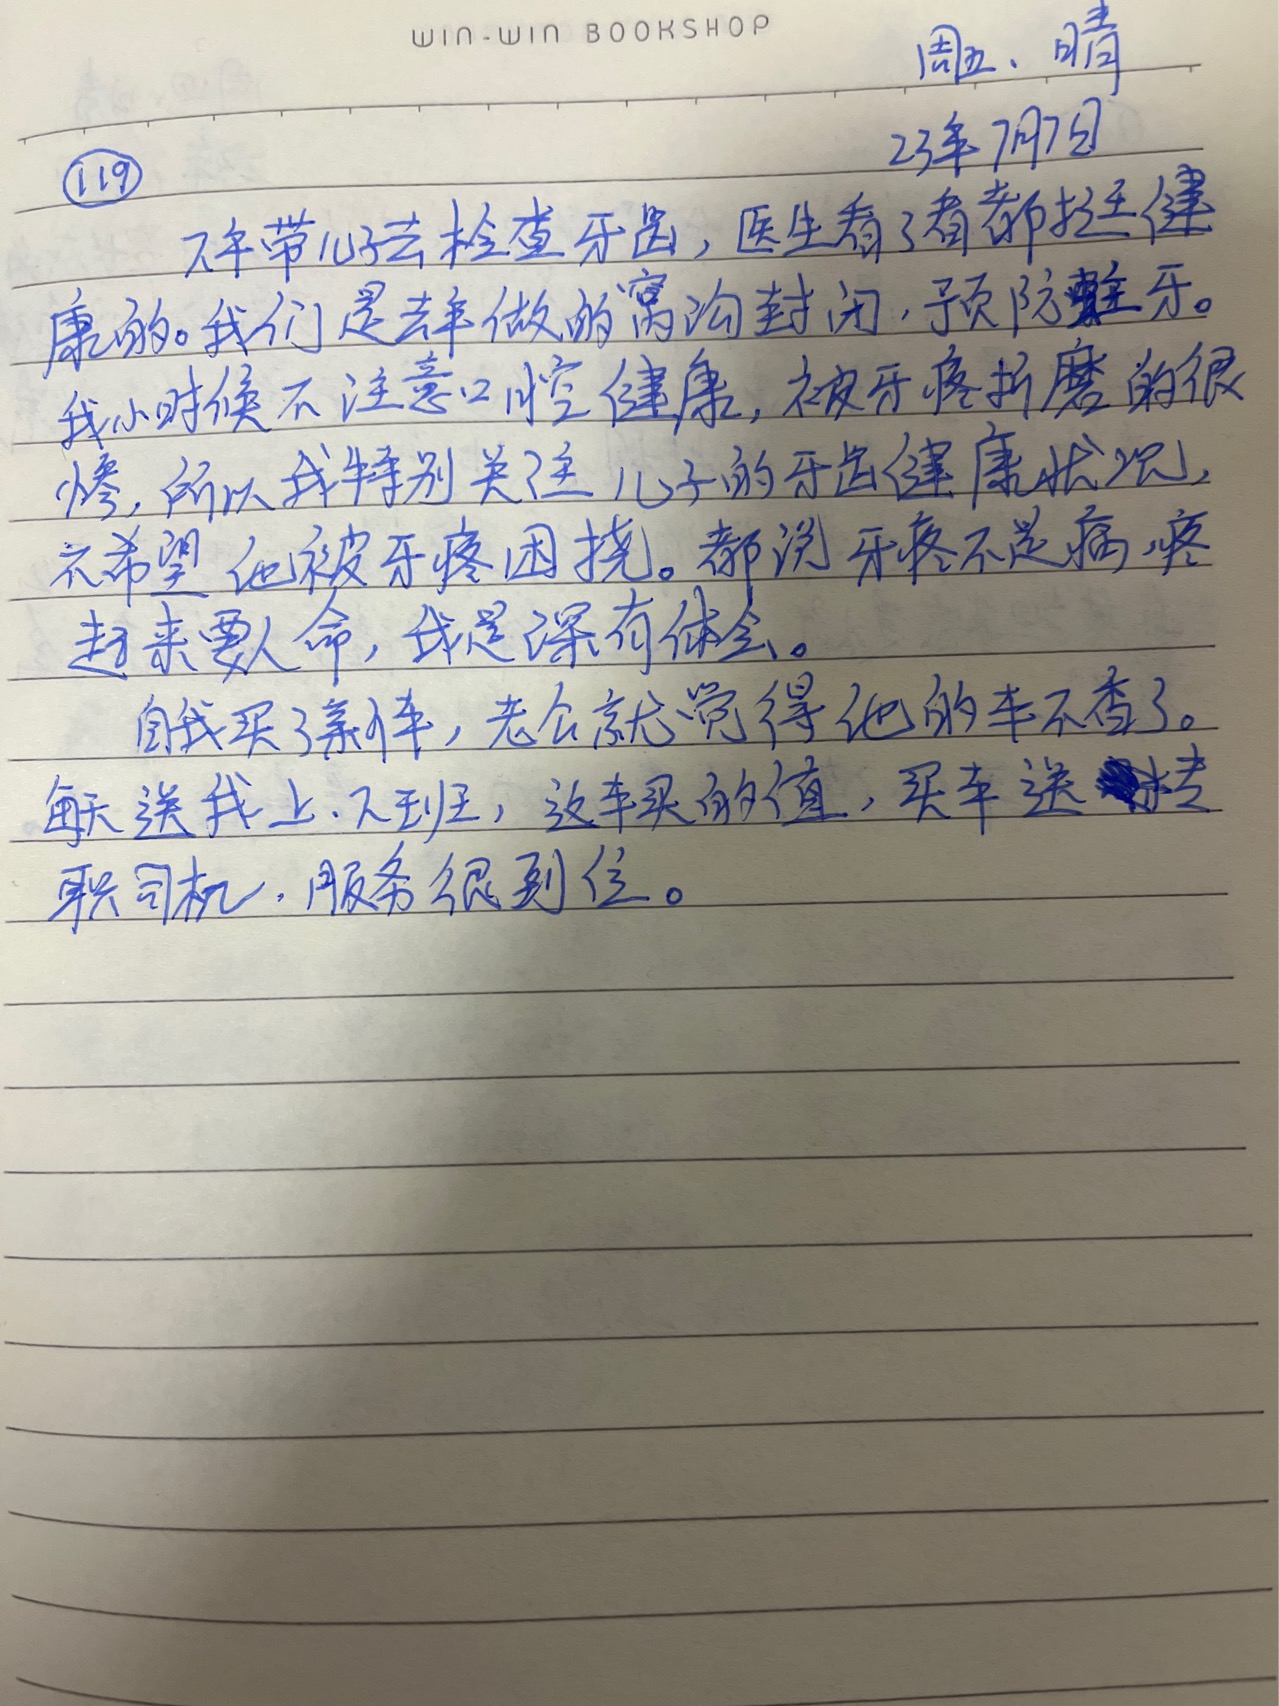 WIN-WIN BOOKSHOP
周五、晴
23年7月7日
119
下午带儿子去检查牙齿,医生看了看都挺健
康的。我们是去年做的窝沟封闭,预防蛀牙。
我小时候不注意口腔健康,被牙疼折磨的很
惨,所以我特别关注儿子的牙齿健康状况,
不希望他被牙疼困挠。都说牙疼不是病,疼
起来要人命,我是深有体会。
自我买了新车,老公就觉得他的车不香了。
每天送我上、下班,这车买的值,买车送
职司机,服务很到位。